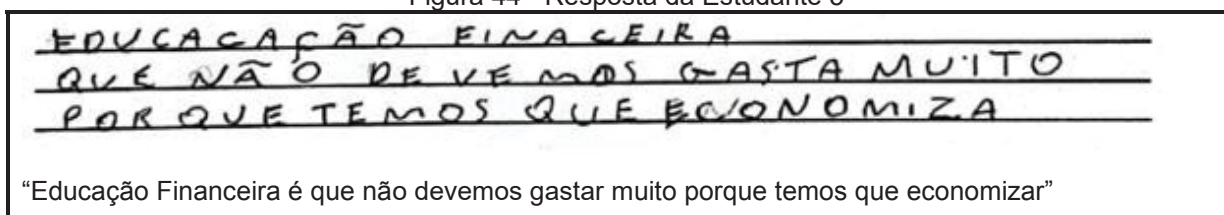 Figura 44 - Resposta da Estudante
EDUCACAÇÃO FINACEIRA
QUE NÃO DEVEMOS GASTA MUITO
POR QUE TEMOS QUE ECONOMIZA
“Educação Financeira é que não devemos gastar muito porque temos que economizar”